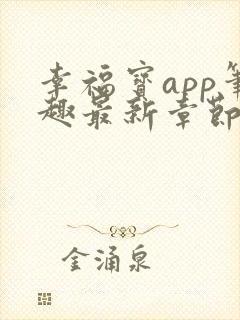 幸福寶app筆
趣最新章節
金涌泉